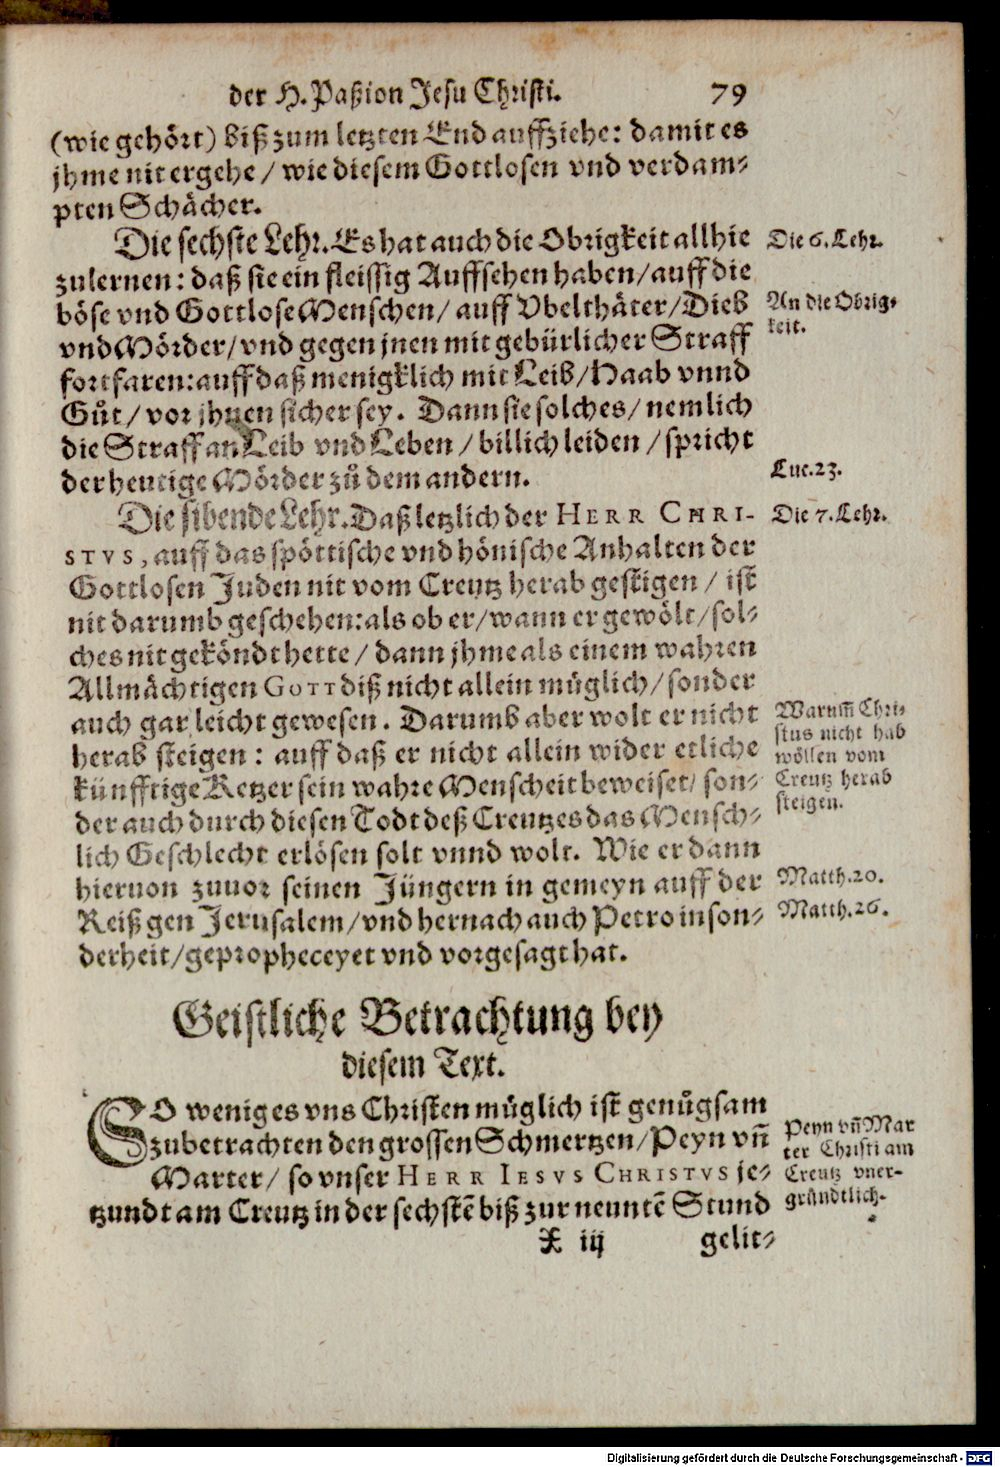 der H. Paßion Jesu Christi. 79
(wie gehört) biß zum letzten End auffziehe: damit es
jhme nit ergehe / wie diesem Gottlosen vnd verdam-
pten Schächer.
Die sechste Lehr. Es hat auch die Obrigkeit allhie
Die 6. Lehr.
zulernen: daß sie ein fleissig Auffsehen haben/ auff die
böse vnd Gottlose Menschen/ auff Vbelthäter/ Dieb
An die Obrig-
vnd Mörder/ vnd gegen jnen mit gebürlicher Straff
keit.
fortfaren: auff daß menigklich mit Leib/ Haab vnnd
Gůt/ vor jhnen sicher sey. Dann sie solches/ nemlich
die Straff an Leib vnd Leben / billich leiden / spricht
der heutige Mörder zů dem andern.
Luc. 23.
Die sibende Lehr. Daß letzlich der HERR CHRI-
Die 7. Lehr.
STVS, auff das spöttische vnd hönische Anhalten der
Gottlosen Juden nit vom Creutz herab gestigen / ist
nit darumb geschehen: als ob er/ wann er gewölt/ sol-
ches nit geköndt hette / dann jhme als einem wahren
Allmächtigen GOTT diß nicht allein müglich/ sonder
auch gar leicht gewesen. Darumb aber wolt er nicht
herab steigen: auff daß er nicht allein wider etliche
künfftige Ketzer sein wahre Menscheit beweiset/ son-
der auch durch diesen Todt deß Creutzes das Mensch-
lich Geschlecht erlösen solt vnnd wolt. Wie er dann
Warum̃ Chri-
stus nicht hab
wöllen vom
Creutz herab
steigen.
hieruon zuuor seinen Jüngern in gemeyn auff der
Matth. 20.
Reiß gen Jerusalem/ vnd hernach auch Petro in son-
Matth. 26.
derheit/ gepropheceyet vnd vorgesagt hat.
Geistliche Betrachtung bey
diesem Text.
SO wenig es vns Christen müglich ist genůgsam
zubetrachten den grossen Schmertzen/ Peyn vn̄
Marter/ so vnser HERR IESVS CHRISTVS je-
tzundt am Creutz in der sechstē biß zur neuntē Stund
Peyn vn̄ Mar
ter Christi am
Creutz vner-
gründtlich.
X iij gelit-
Digitalisierung gefördert durch die Deutsche Forschungsgemeinschaft - DFG